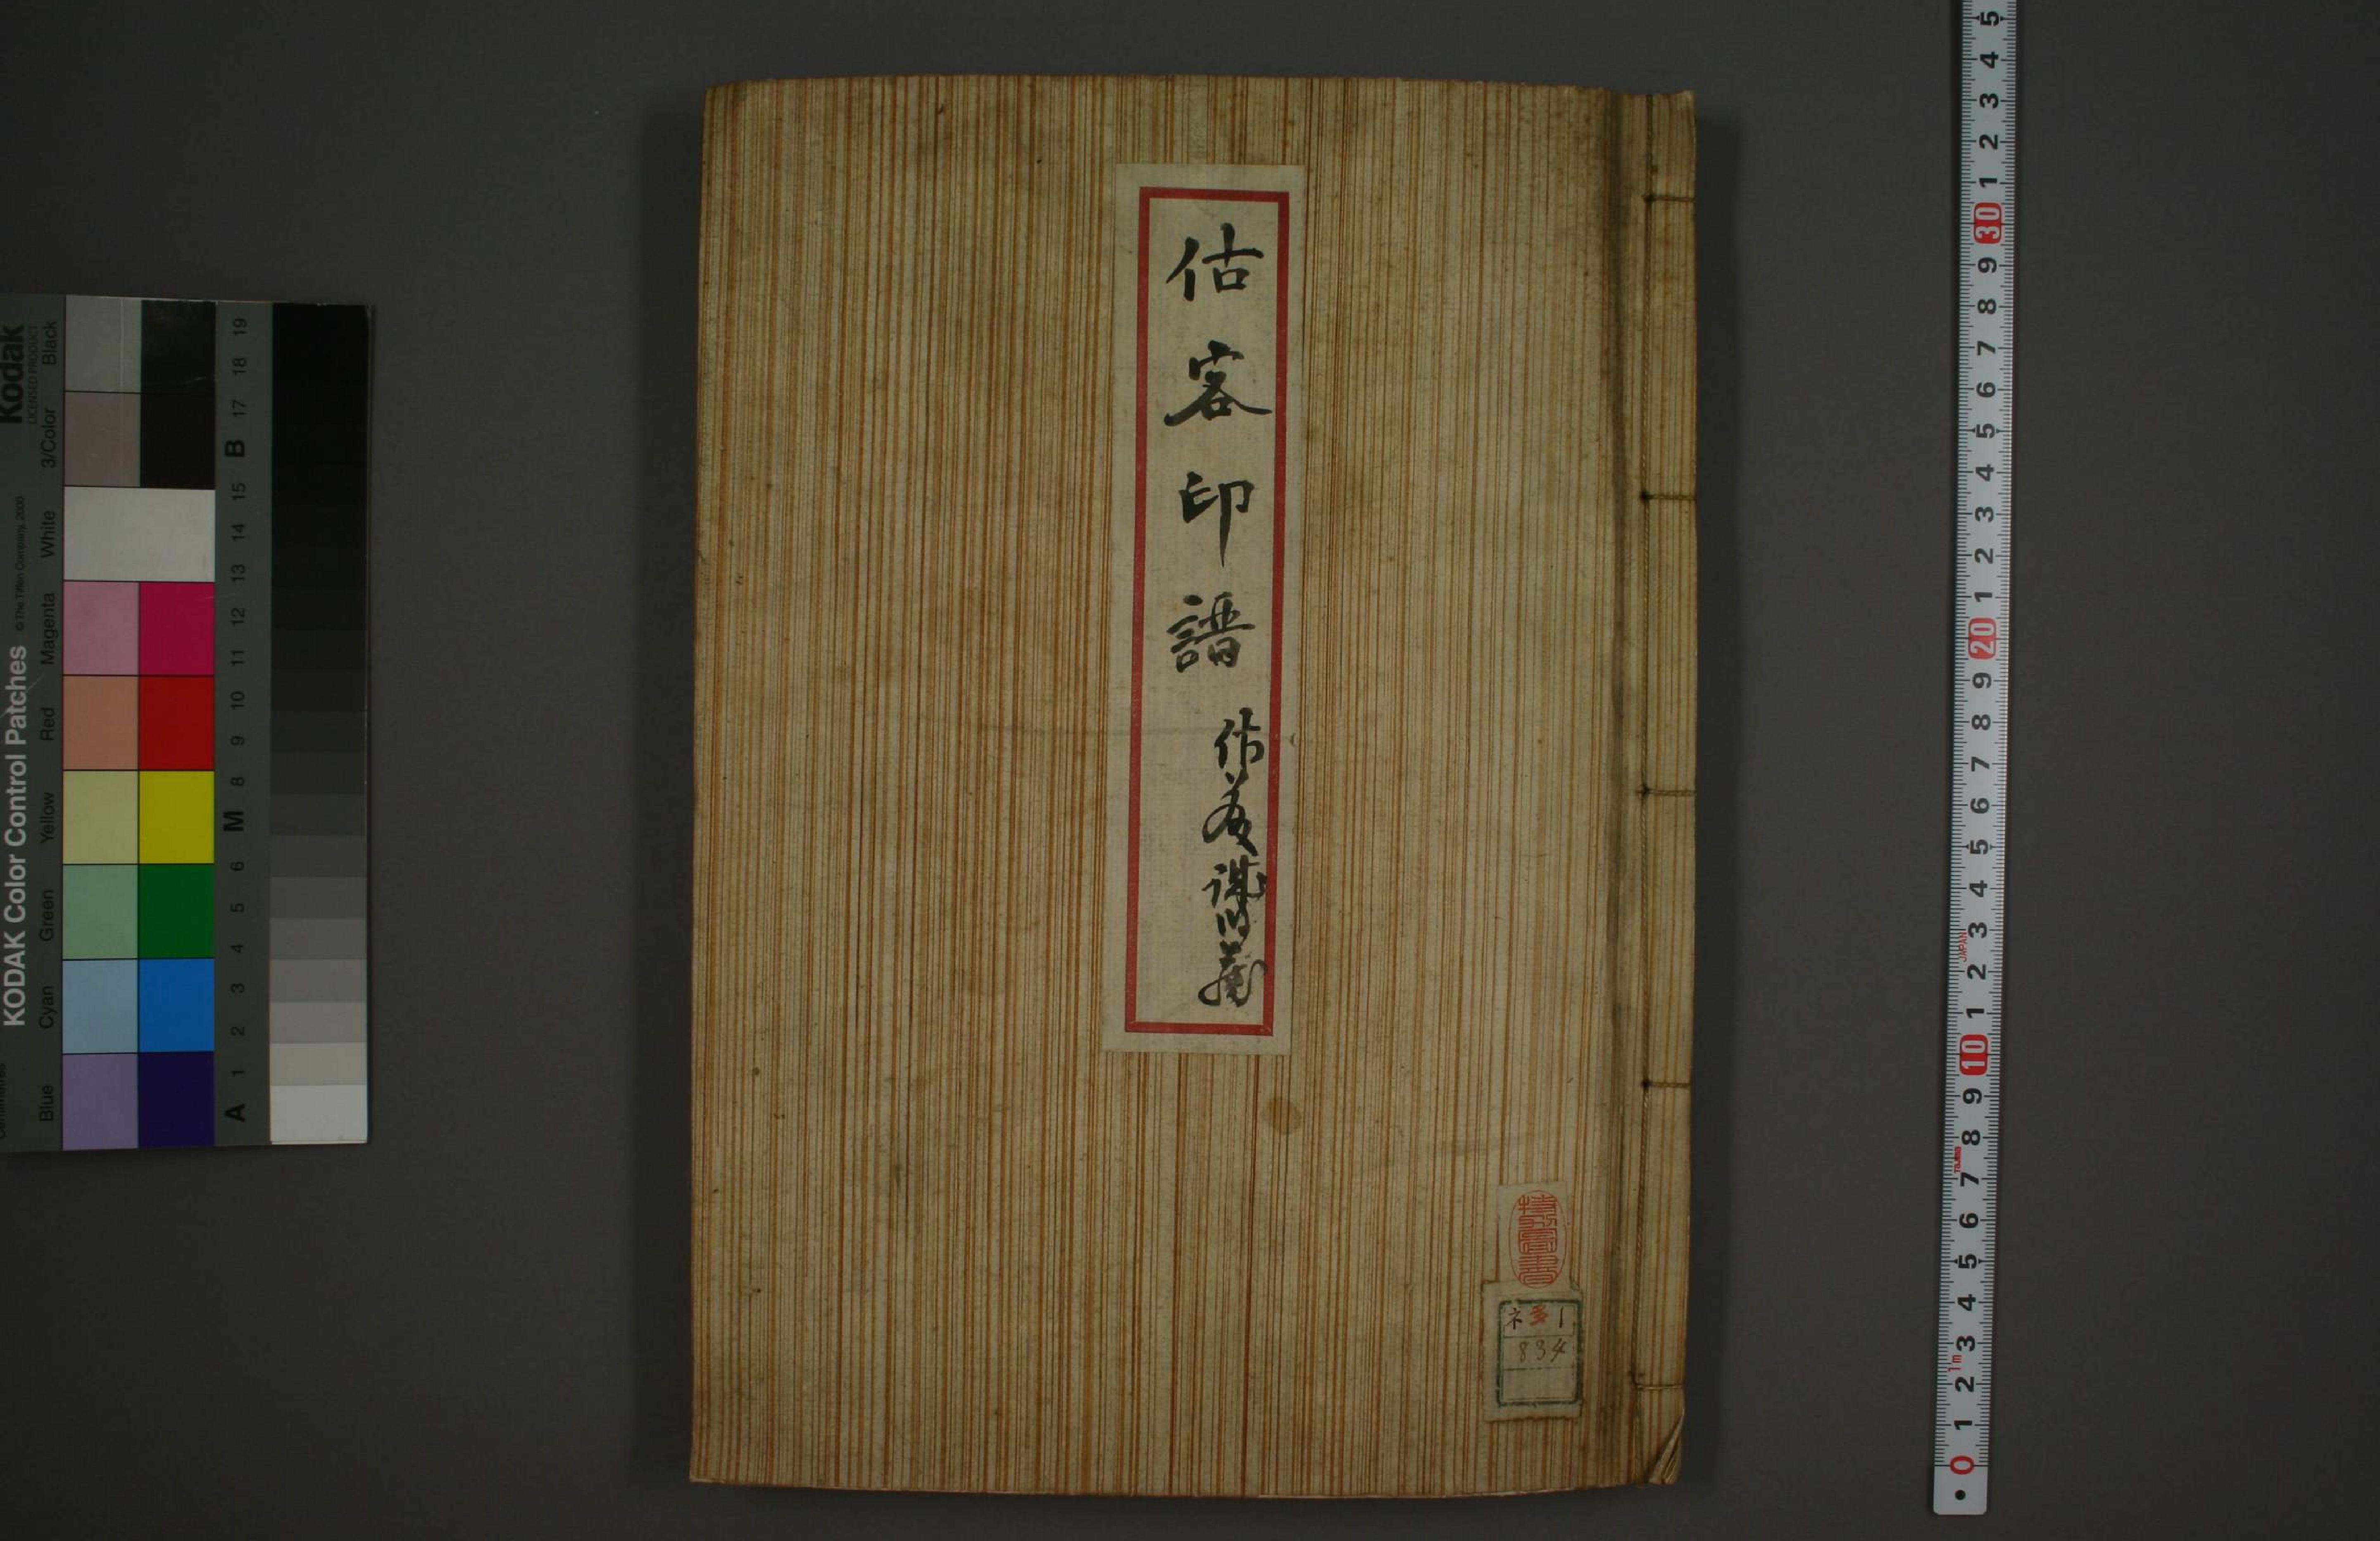 估客印譜
ネ多1
834
KODAK Color Control Patches
© The Tiffen Company, 2000
Kodak
LICENSED PRODUCT
Blue Cyan Green Yellow Red Magenta White 3/Color Black
A 1 2 3 4 5 6 M 8 9 10 11 12 13 14 15 B 17 18 19
0 1 2 3 4 5 6 7 8 9 10 1 2 3 4 5 6 7 8 9 20 1 2 3 4 5 6 7 8 9 30 1 2 3 4 5
1m
JAPAN